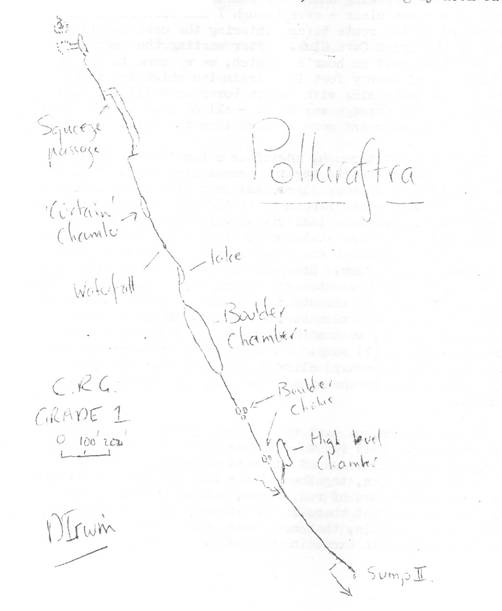 Pollaraftra
Squeeze
passage
'Curtain'
Chamber
Waterfall
lake
Boulder
Chamber
C.R.G.
GRADE 1
0 100' 200'
Boulder
Choke
High level
Chamber
DIrwin
Sump II.